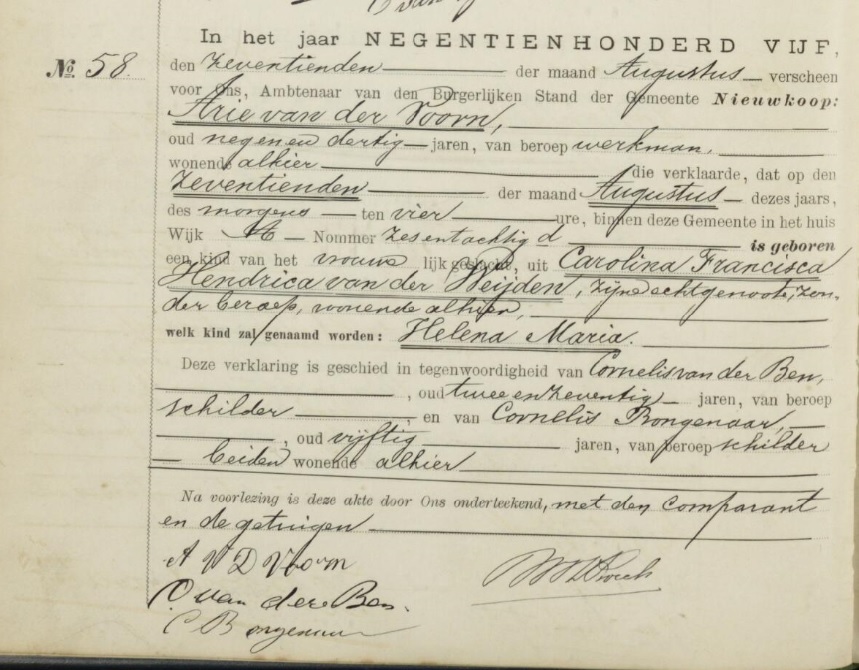 In het jaar NEGENTIENHONDERD VIJF,
No. 58.
den zeventienden der maand Augustus verscheen
voor Ons, Ambtenaar van den Burgerlijken Stand der Gemeente Nieuwkoop:
Arie van der Voorn,
oud negenen dertig jaren, van beroep werkman,
wonende alhier die verklaarde, dat op den
zeventienden der maand Augustus dezes jaars,
des morgens ten vier ure, binnen deze Gemeente in het huis
Wijk A Nommer zesentachtig d is geboren
een kind van het vrouwelijk geslacht, uit Carolina Francisca
Hendrica van der Weijden, zijne echtgenoote, zon-
der beroep, wonende alhier,
welk kind zal genaamd worden: Helena Maria.
Deze verklaring is geschied in tegenwoordigheid van Cornelis van der Ben,
, oud twee en zeventig jaren, van beroep
schilder , en van Cornelis Bongenaar,
, oud vijftig jaren, van beroep schilder
beiden wonende alhier
Na voorlezing is deze akte door Ons onderteekend, met den comparant
en de getuigen
A V D Voorn
C van der Ben.
C Bongenaar